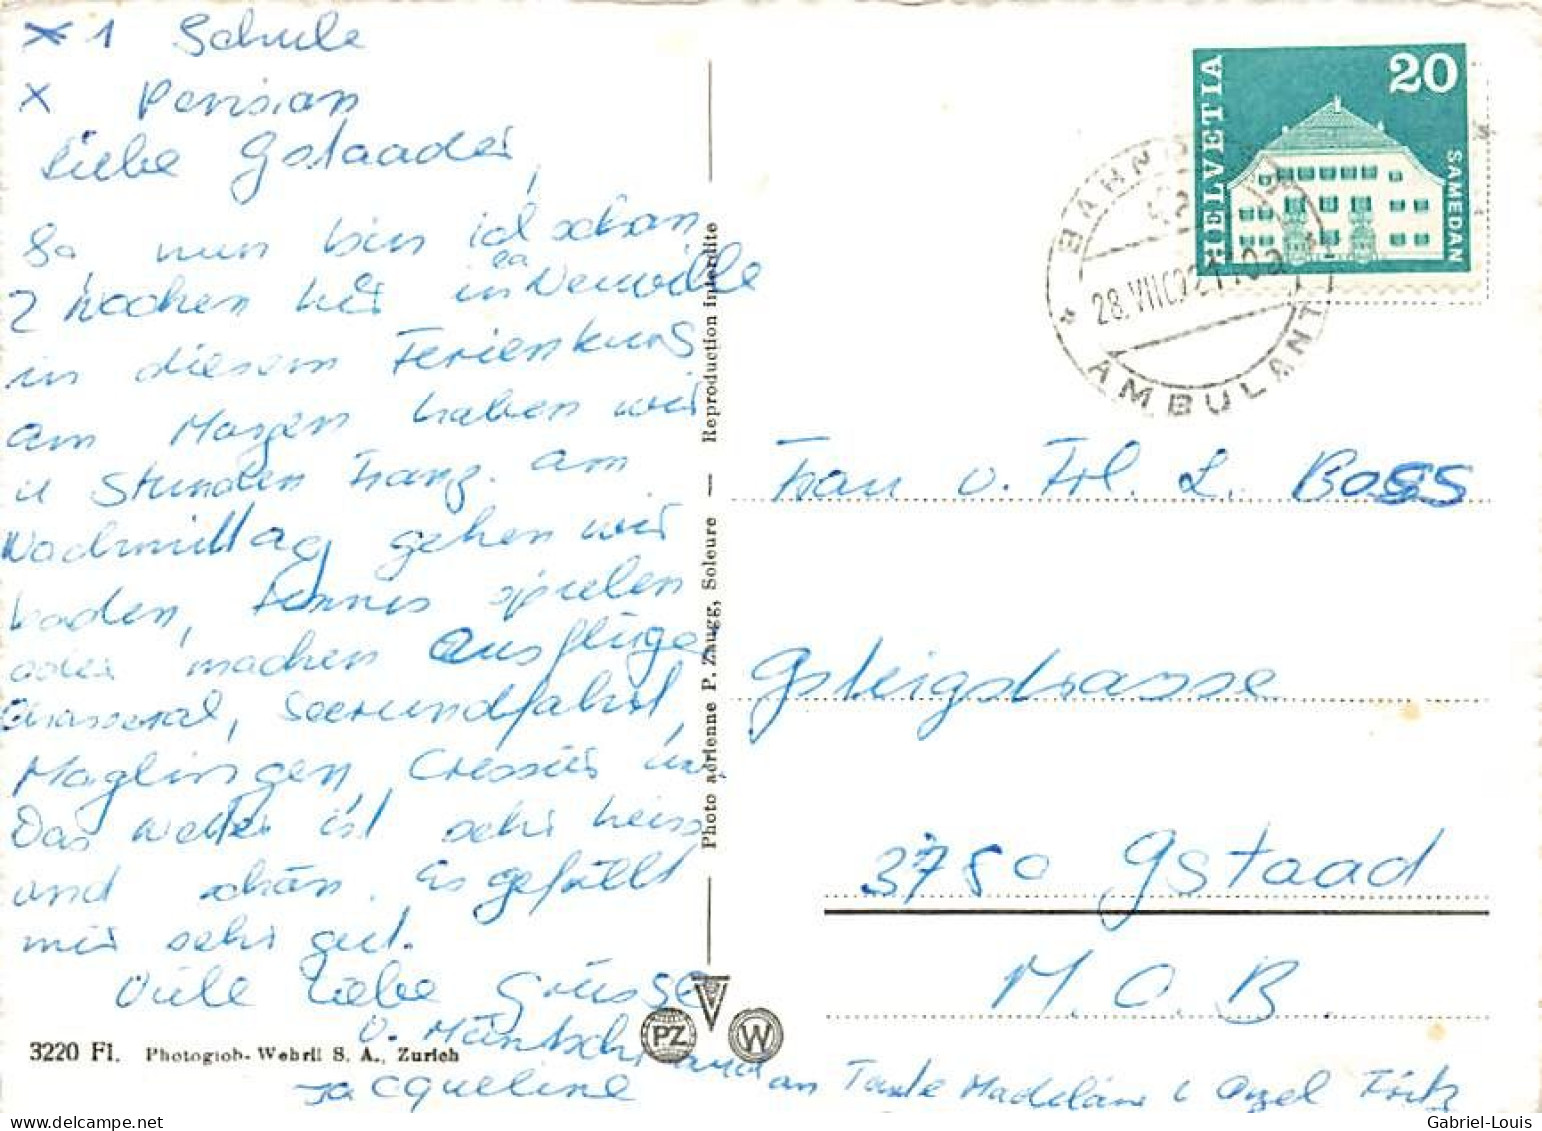 x 1 Schule
x Pension
Liebe Gstaader,
So nun bin ich schon
2 Wochen hier in La Neuville
in diesem Ferienkurs
Am Morgen haben wir
4 Stunden Franz. Am
Nachmittag gehen wir
baden, Tennis spielen
oder machen Ausflüge
Chasseral, Seerundfahrt,
Maglingen, Cressier usw.
Das Wetter ist sehr heiss
und schön. Es gefällt
mir sehr gut.
Viele liebe Grüsse
u. Müntschi
Jacqueline
and an Tante Madelaine u Onkel Fritz
3220 Fl. Photoglob-Wehrli S. A., Zürich
Photo aérienne P. Zaugg, Soleure — Reproduction interdite
PZ
W
HELVETIA
20
SAMEDAN
BAHNPOST
AMBULANT
28.VII
Frau u. Frl. L. Boss
Gsteigstrasse
3780 Gstaad
M.O.B.
Gabriel-Louis